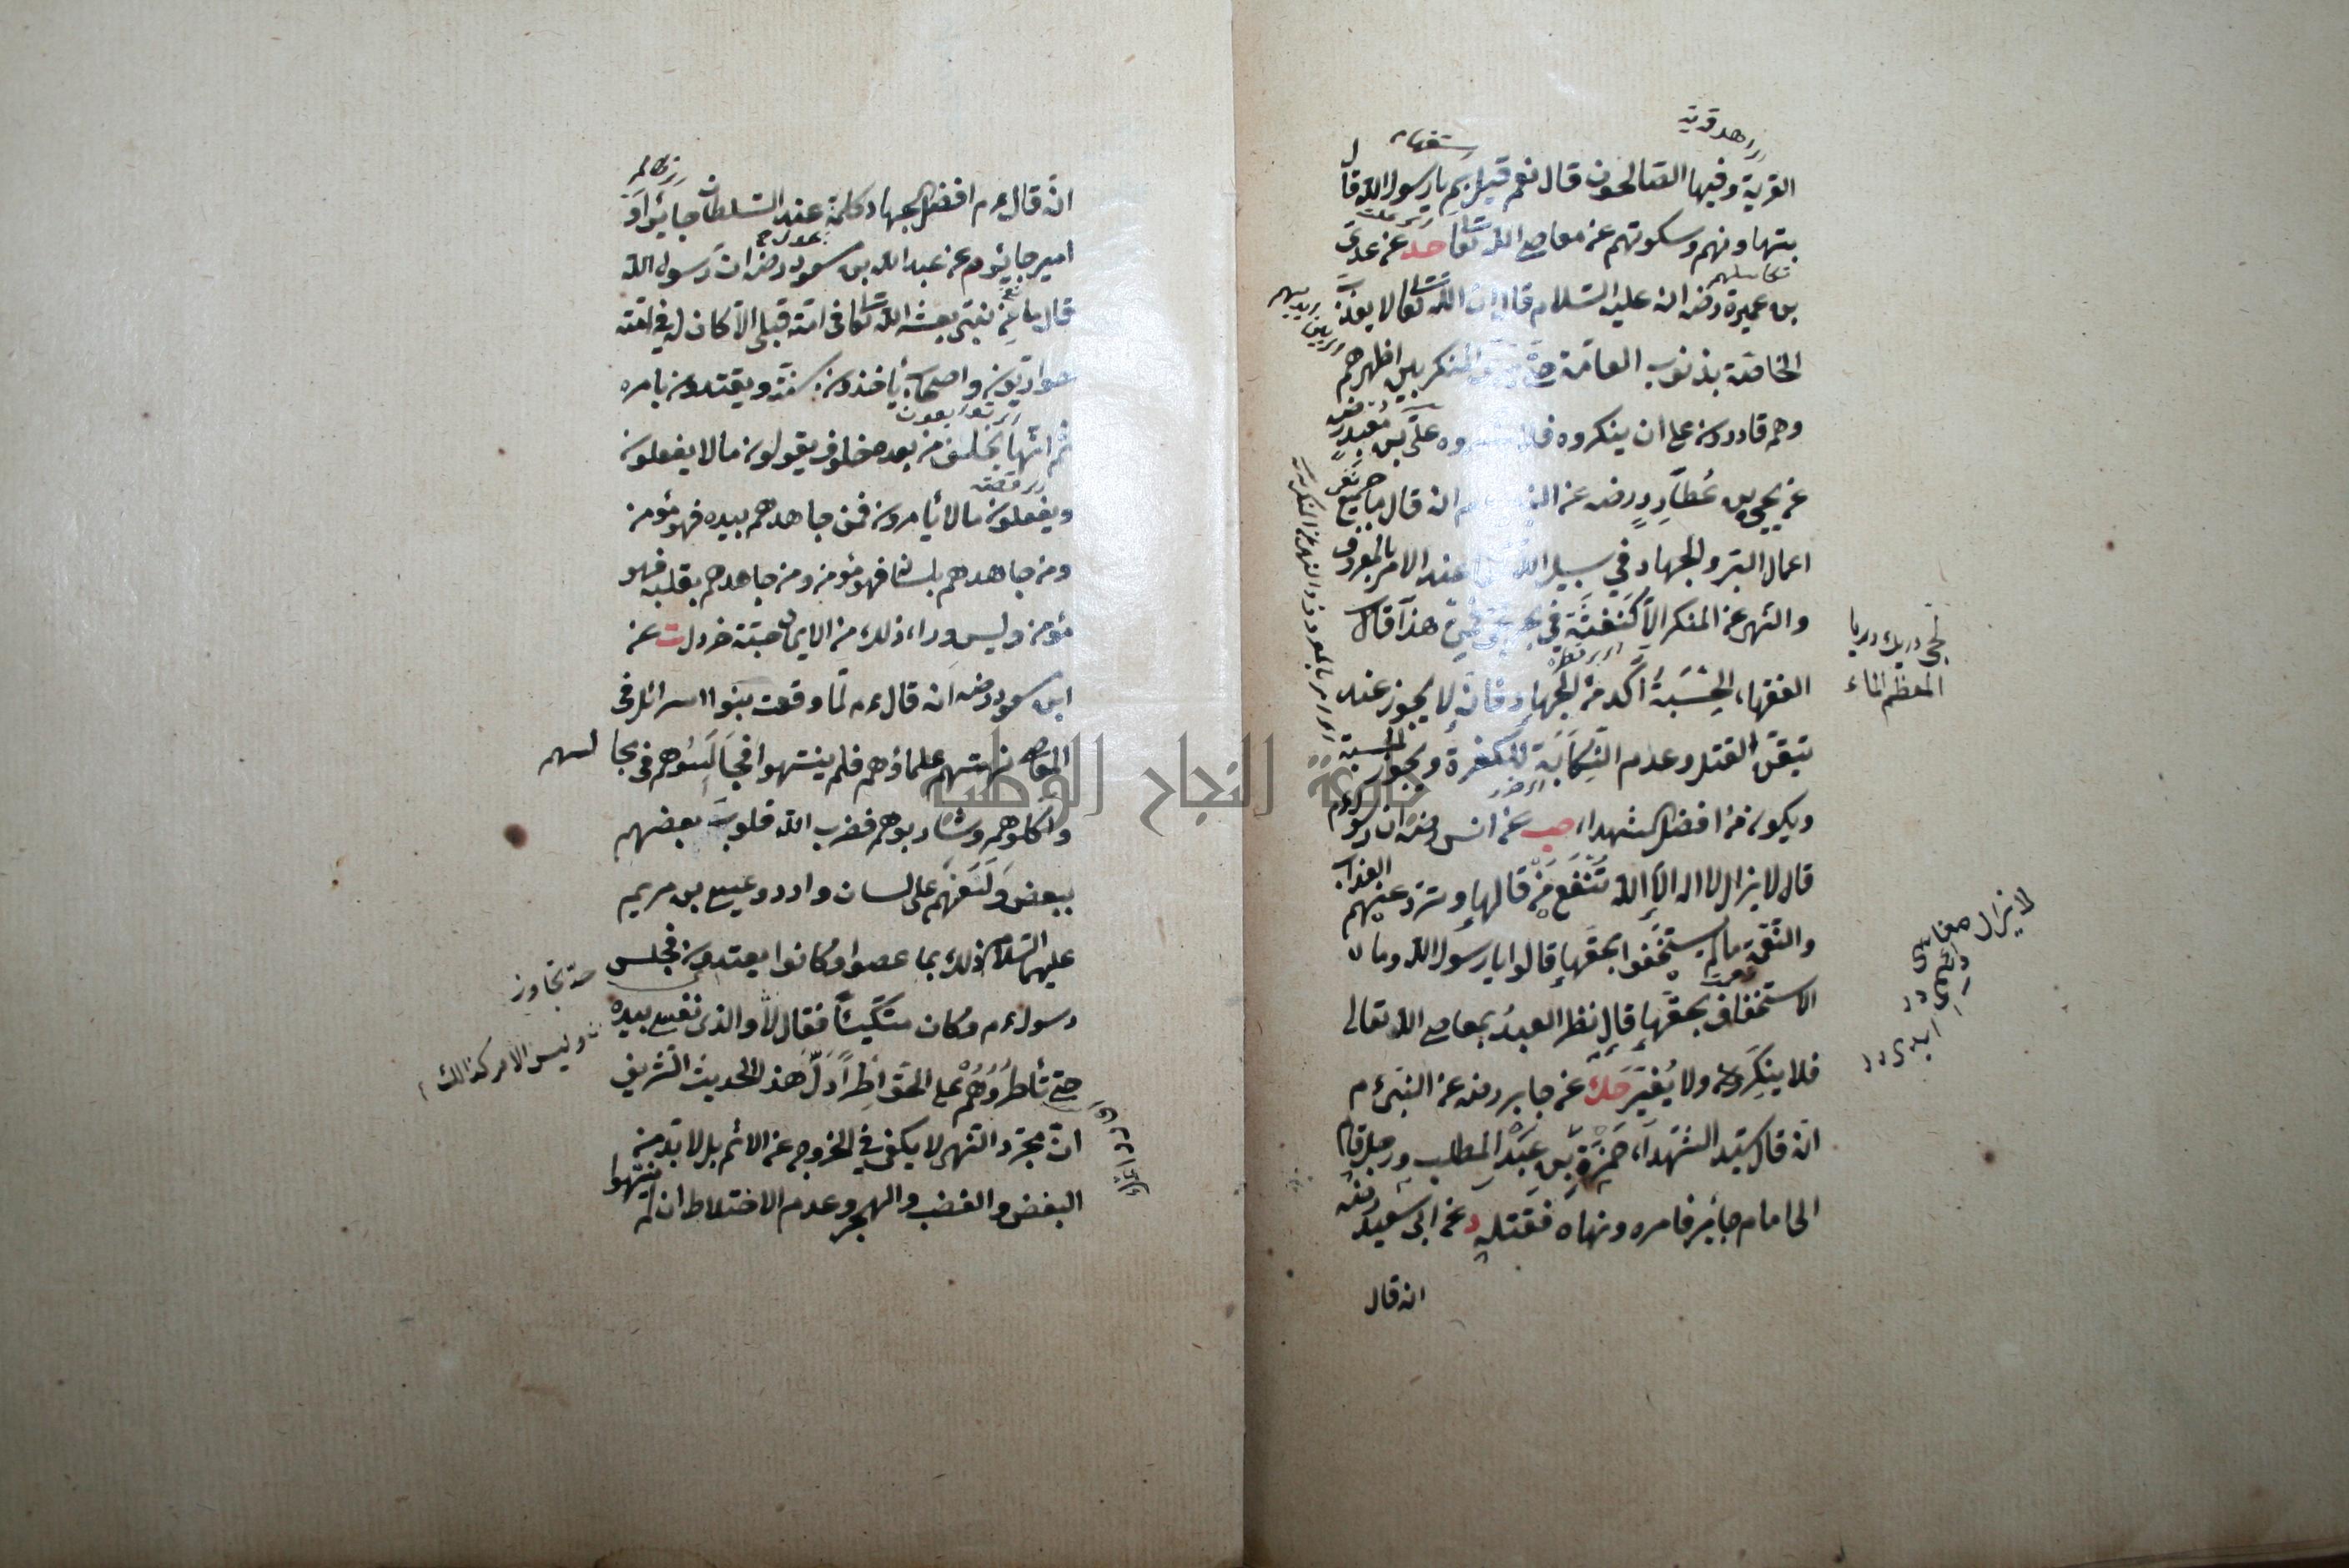 القرية وفيها الصالحون قال نعم قيل بم يا رسول الله قال
بتهاونهم وسكوتهم عن معاصي الله تعا حد عن عدي
بن عميرة رضه انه عليه السلام قال ان الله تعالى لا يعذب
الخاصة بذنوب العامة حتى المنكر بين اظهرهم
وهم قادرون على ان ينكروه فلا علي بن معبد
عن يحيى بن عطارد رضه عن انه قال ما جميع
اعمال البر والجهاد في سبيل الله عند الامر بالمعروف
والنهي عن المنكر الا كنفثة في بحر لجي هذا قال
الفقهاء الحسبة آكد من الجهاد فانه لا يجوز عند
تيقن القتل وعدم النكاية للكفرة ويجوز الحسبة
ويكون من افضل الشهداء صب عن انس رضه ان رسول ءم
قال لا يزال لا اله الا الله تنفع من قالها وترد عنهم العذاب
والنقمة ما لم يستخفوا بحقها قالوا يا رسول الله وما
الاستخفاف بحقها قال نظر العبد بمعاصي الله تعالى
فلا ينكرونه ولا يغير حك عن جابر رضه عن النبي ءم
انه قال سيد الشهداء حمزة بن عبد المطلب ورجل قام
الى امام جائر فامره ونهاه فقتله د عن ابي سعيد رضه
انه قال
اهل قرية
تكاسلهم
لجي دريك دريا
المعظم الماء
لا يزال
انه قال ءم افضل الجهاد كلمة عند السلطان جائر او
امير جائر م عن عبد الله بن مسعود رضه ان رسول الله
قال ما من نبي بعثه الله تعا في امته قبلي الا كان له في امته
حواريون واصحاب يأخذون بسنته ويقتدون بامره
ثم انها يخلف من بعده خلوف يقولون ما لا يفعلون
ويفعلون ما لا يأمرون فمن جاهدهم بيده فهو مؤمن
ومن جاهدهم بلسانه فهو مؤمن ومن جاهدهم بقلبه فهو
مؤمن وليس وراء ذلك من الايمان حبة خردل ت عن
ابن مسعود رضه انه قال ءم لما وقعت بنوا اسرائل في
المعاصي نهتهم علماؤهم فلم ينتهوا فجالسوهم في مجالسهم
وآكلوهم وشاربوهم فضرب الله قلوب بعضهم
ببعض ولعنهم على لسان داود وعيسى بن مريم
عليهما السلام ذلك بما عصوا وكانوا يعتدون فجلس
رسول ءم وكان متكئا فقال لا والذي نفسي بيده
حتى تأطروهم على الحق اطرا دل هذا الحديث الشريف
ان مجرد النهي لا يكفي في الخروج عن الاثم بل لا بد من
البغض والغضب والهجر وعدم الاختلاط ان لم ينتهوا
ظالم
حد تجاوز
وليس الامر كذالك
جامعة النجاح الوطنية